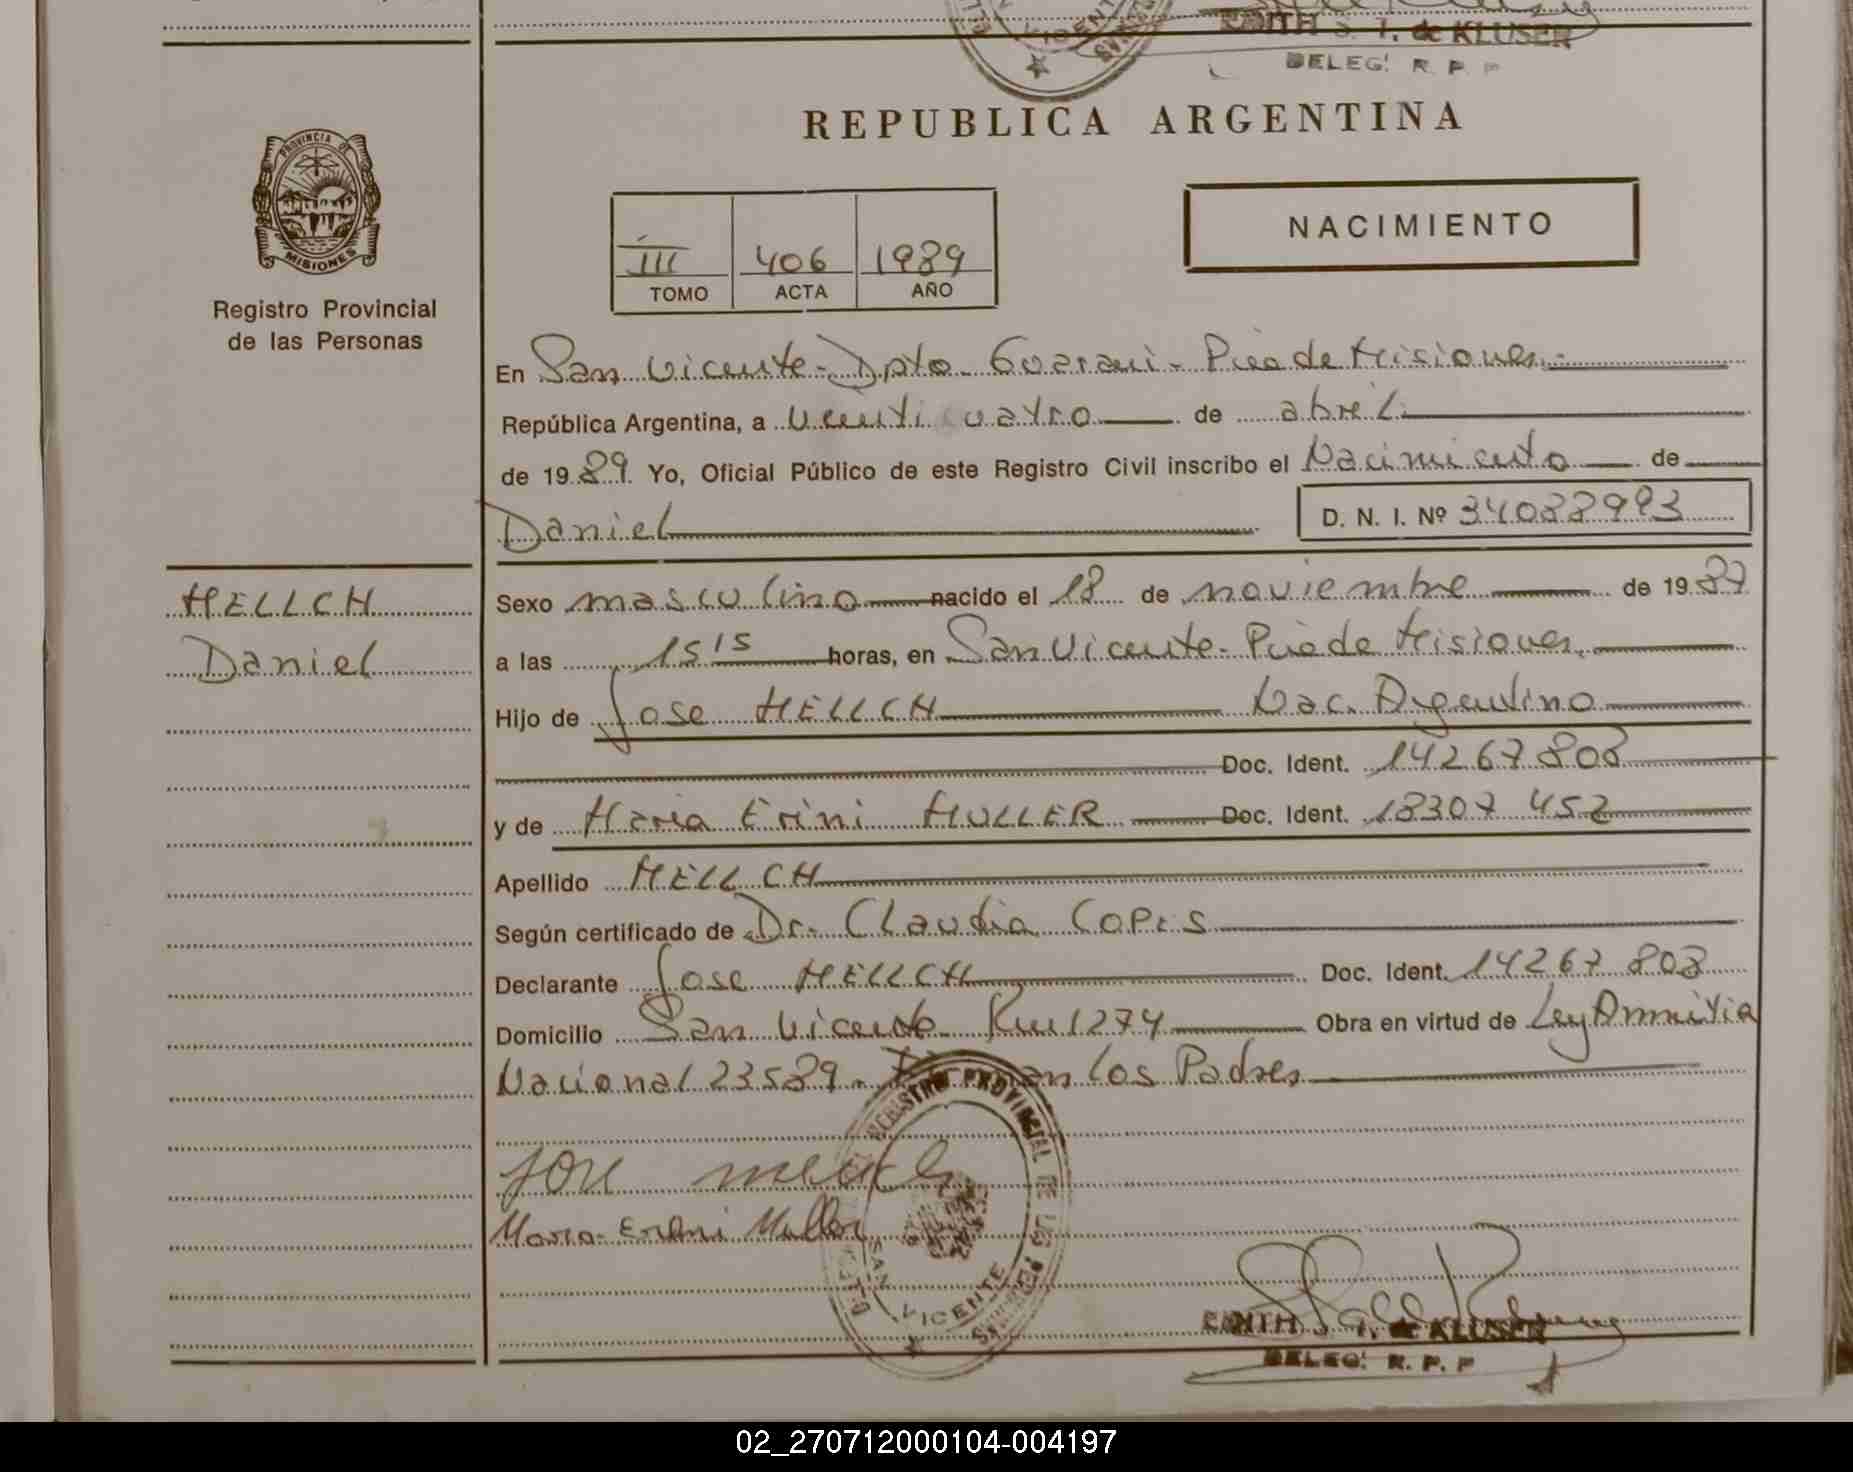 EDITH S. T. de KLUSER
DELEG. R. P. P
REPUBLICA ARGENTINA
PROVINCIA DE
MISIONES
Registro Provincial
de las Personas
III 406 1989
TOMO ACTA AÑO
NACIMIENTO
En San Vicente - Dpto. Guarani - Pcia de Misiones.-
República Argentina, a veinticuatro de abril
de 1989 Yo, Oficial Público de este Registro Civil inscribo el Nacimiento de
Daniel D. N. I. Nº 34088993
HELLCH
Daniel
Sexo masculino nacido el 18 de noviembre de 1987
a las 15 15 horas, en San Vicente - Pcia de Misiones.
Hijo de Jose HELLCH Nac. Argentino
Doc. Ident. 14267808
y de Maria Erini MULLER Doc. Ident. 18307 452
Apellido HELLCH
Según certificado de Dr. Claudia
Declarante Jose HELLCH Doc. Ident. 14267 808
Domicilio San Vicente Km 1274 Obra en virtud de Ley Amnitia
Nacional 23589. los Padres
Jose
Maria Ereni Muller
REGISTRO PROVINCIAL DE LAS PERSONAS
SAN VICENTE
EDITH S. T. de KLUSER
DELEG. R. P. P
02_270712000104-004197